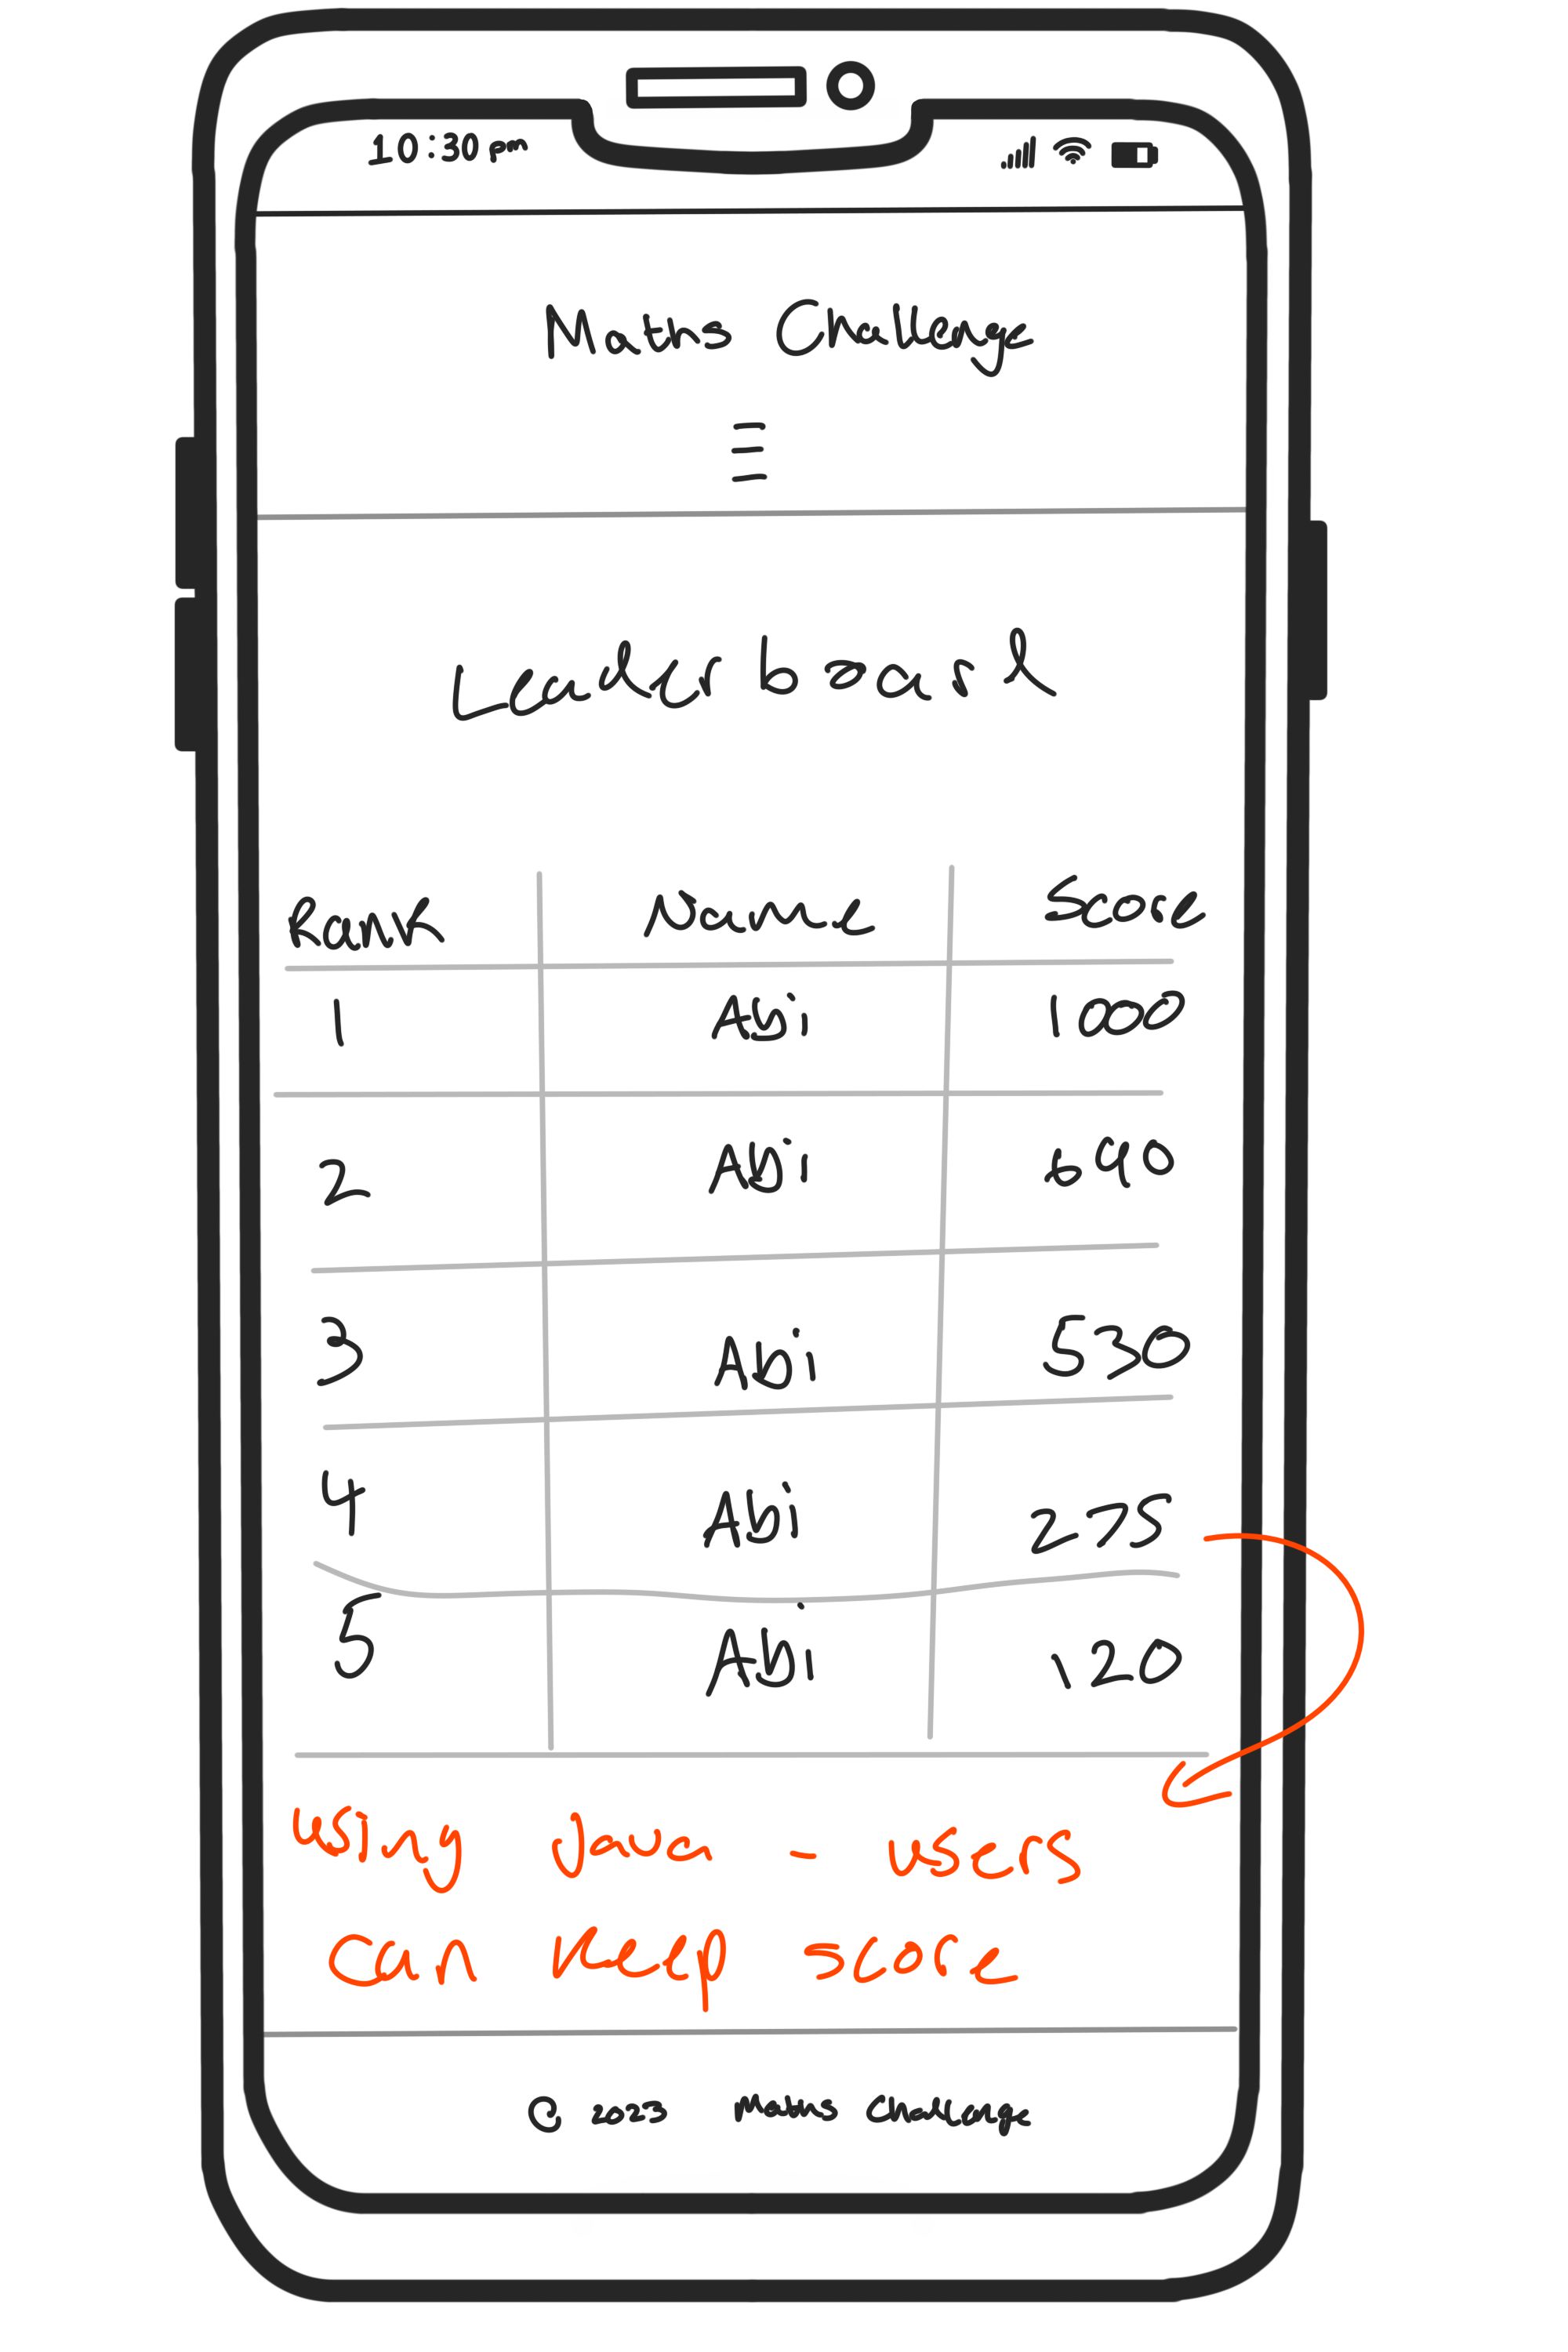 10:30 pm
Maths Challenge
Leader board
Rank Name Score
1 Abi 1000
2 Abi 690
3 Abi 530
4 Abi 275
5 Abi 120
Using Java - users
can keep score
© 2023 Maths Challenge